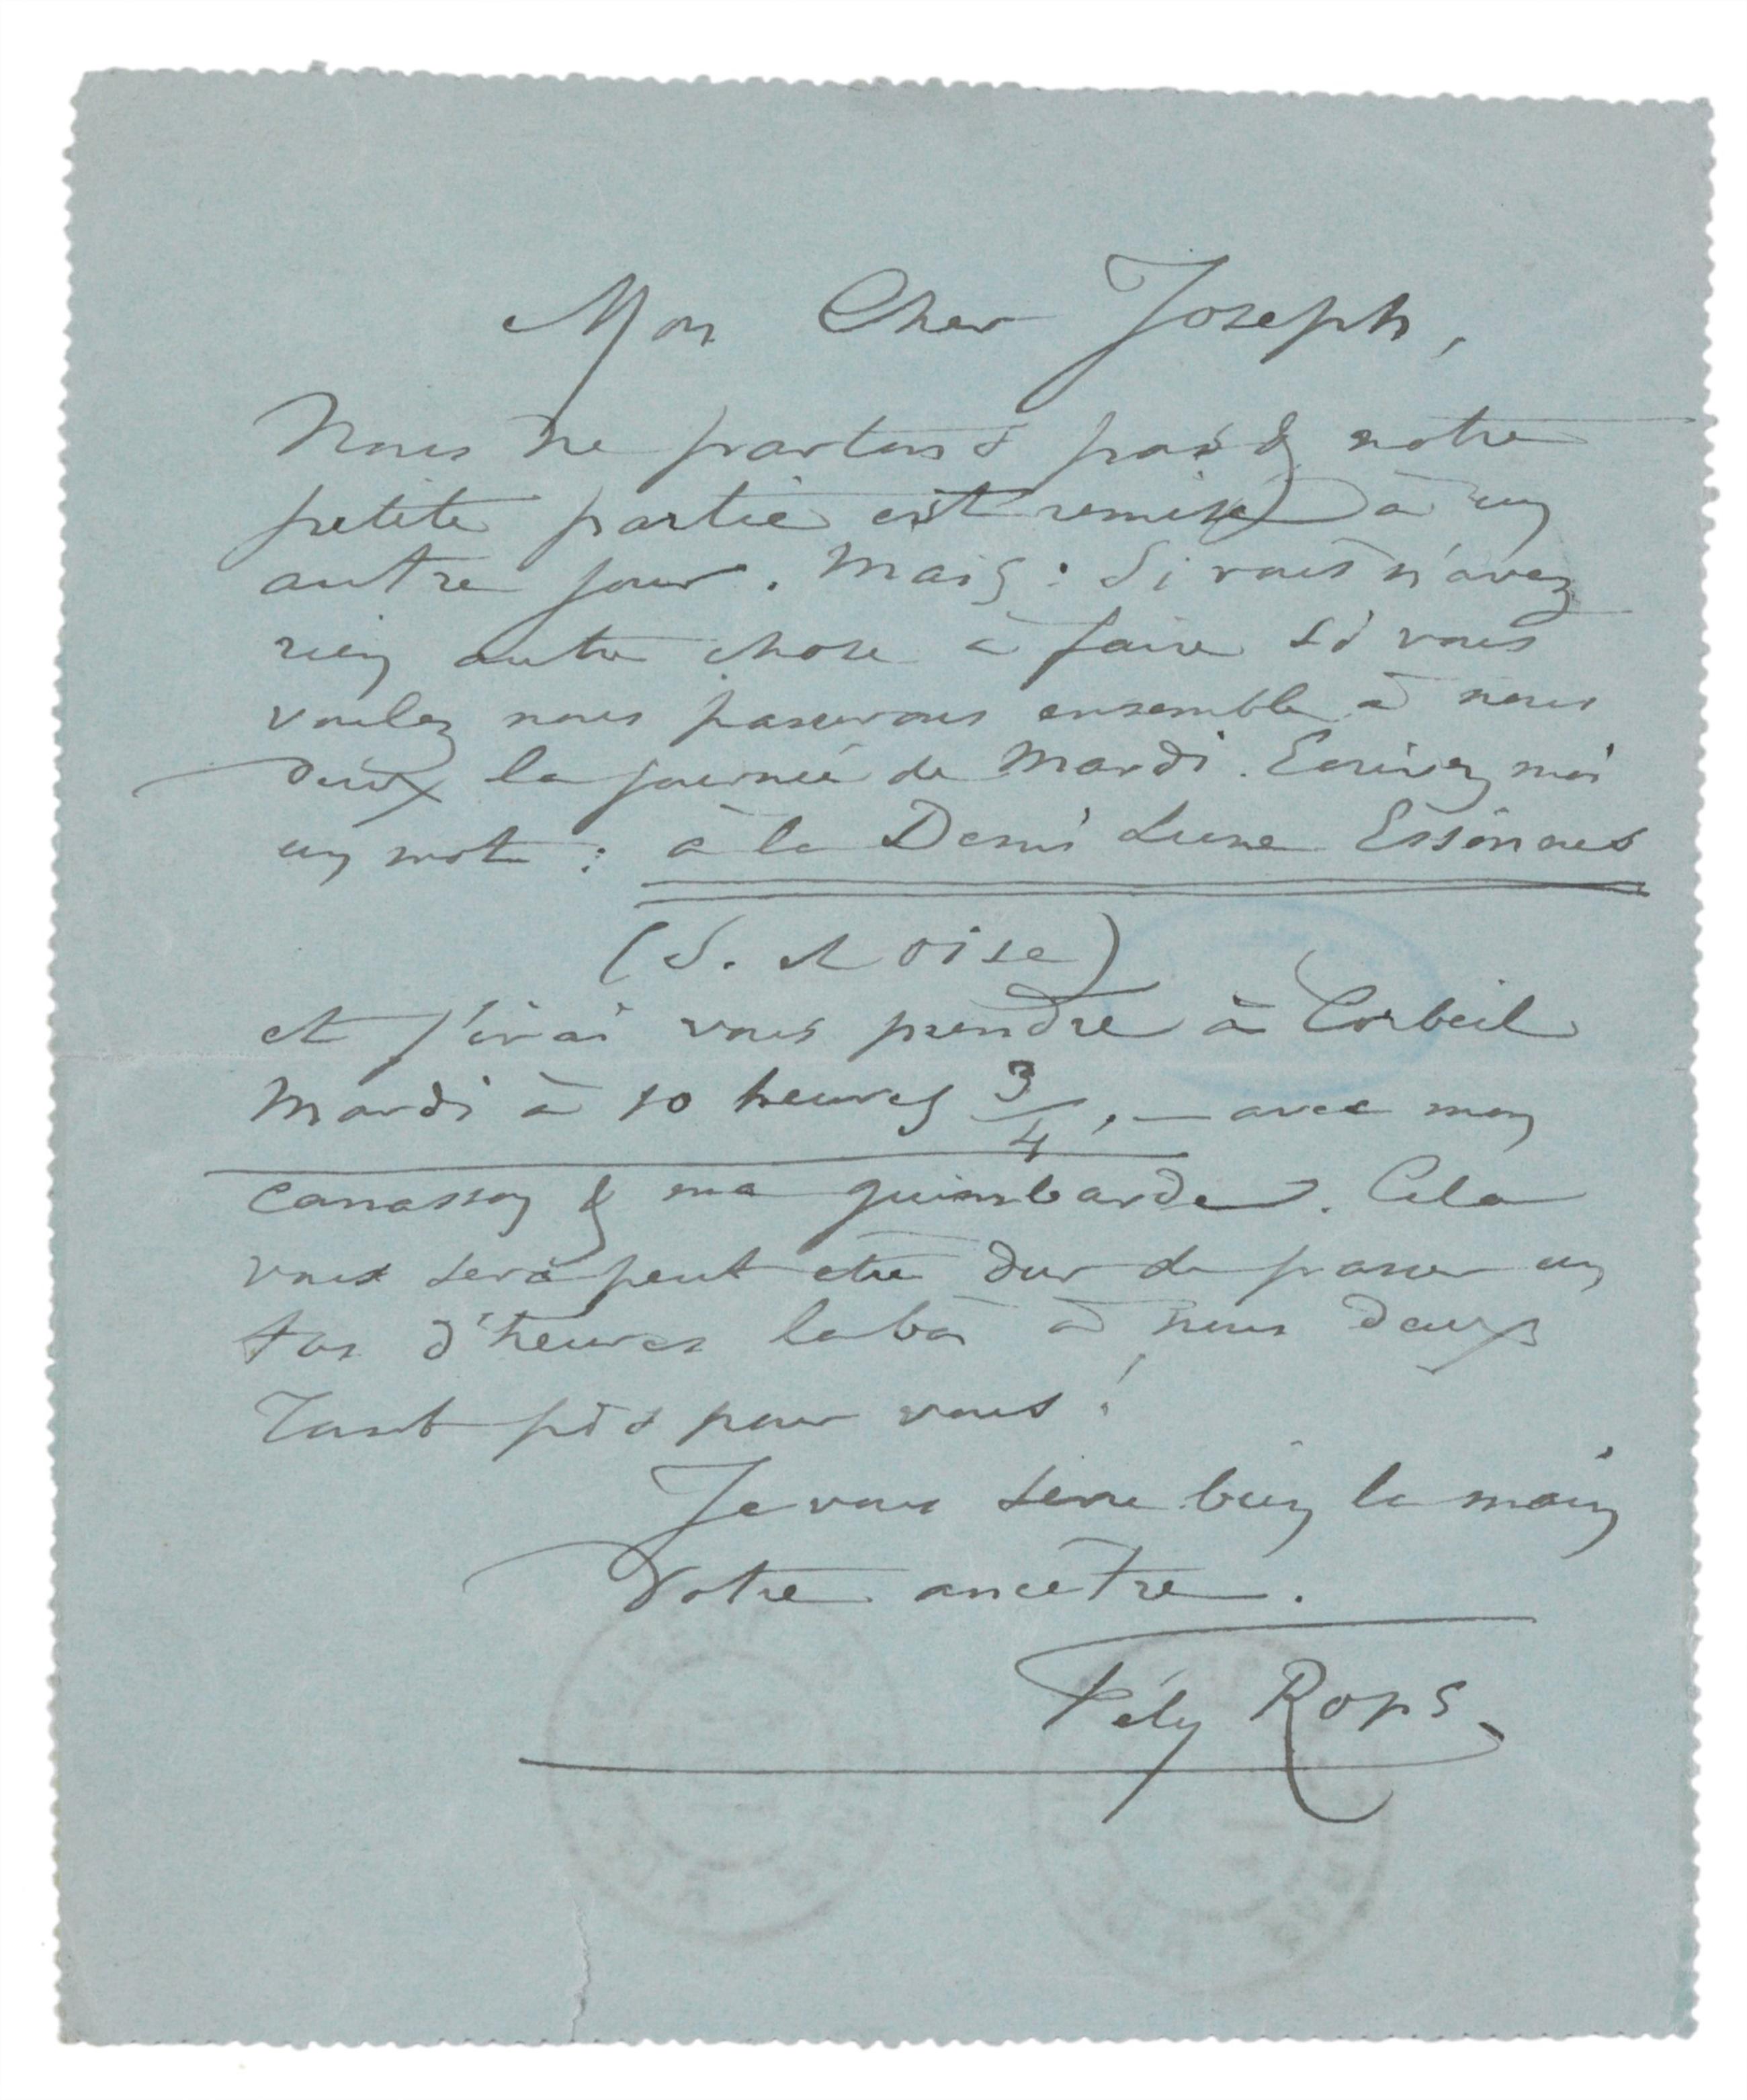 Mon Cher Joseph,
Nous ne partons pas & notre
petite partie est remise à un
autre jour. Mais : Si vous n'avez
rien autre chose à faire si vous
voulez nous passerons ensemble à nous
deux la journée de Mardi. Ecrivez moi
un mot : à la Demi Lune Essonnes
(S. et Oise)
et j'irai vous prendre à Corbeil
Mardi à 10 heures 3/4, – avec mon
canasson & ma guimbarde. Cela
vous sera peut etre dur de passer un
tas d'heures labas à nous deux
Tant pis pour vous !
Je vous serre bien la main
Votre ancêtre.
Fély Rops